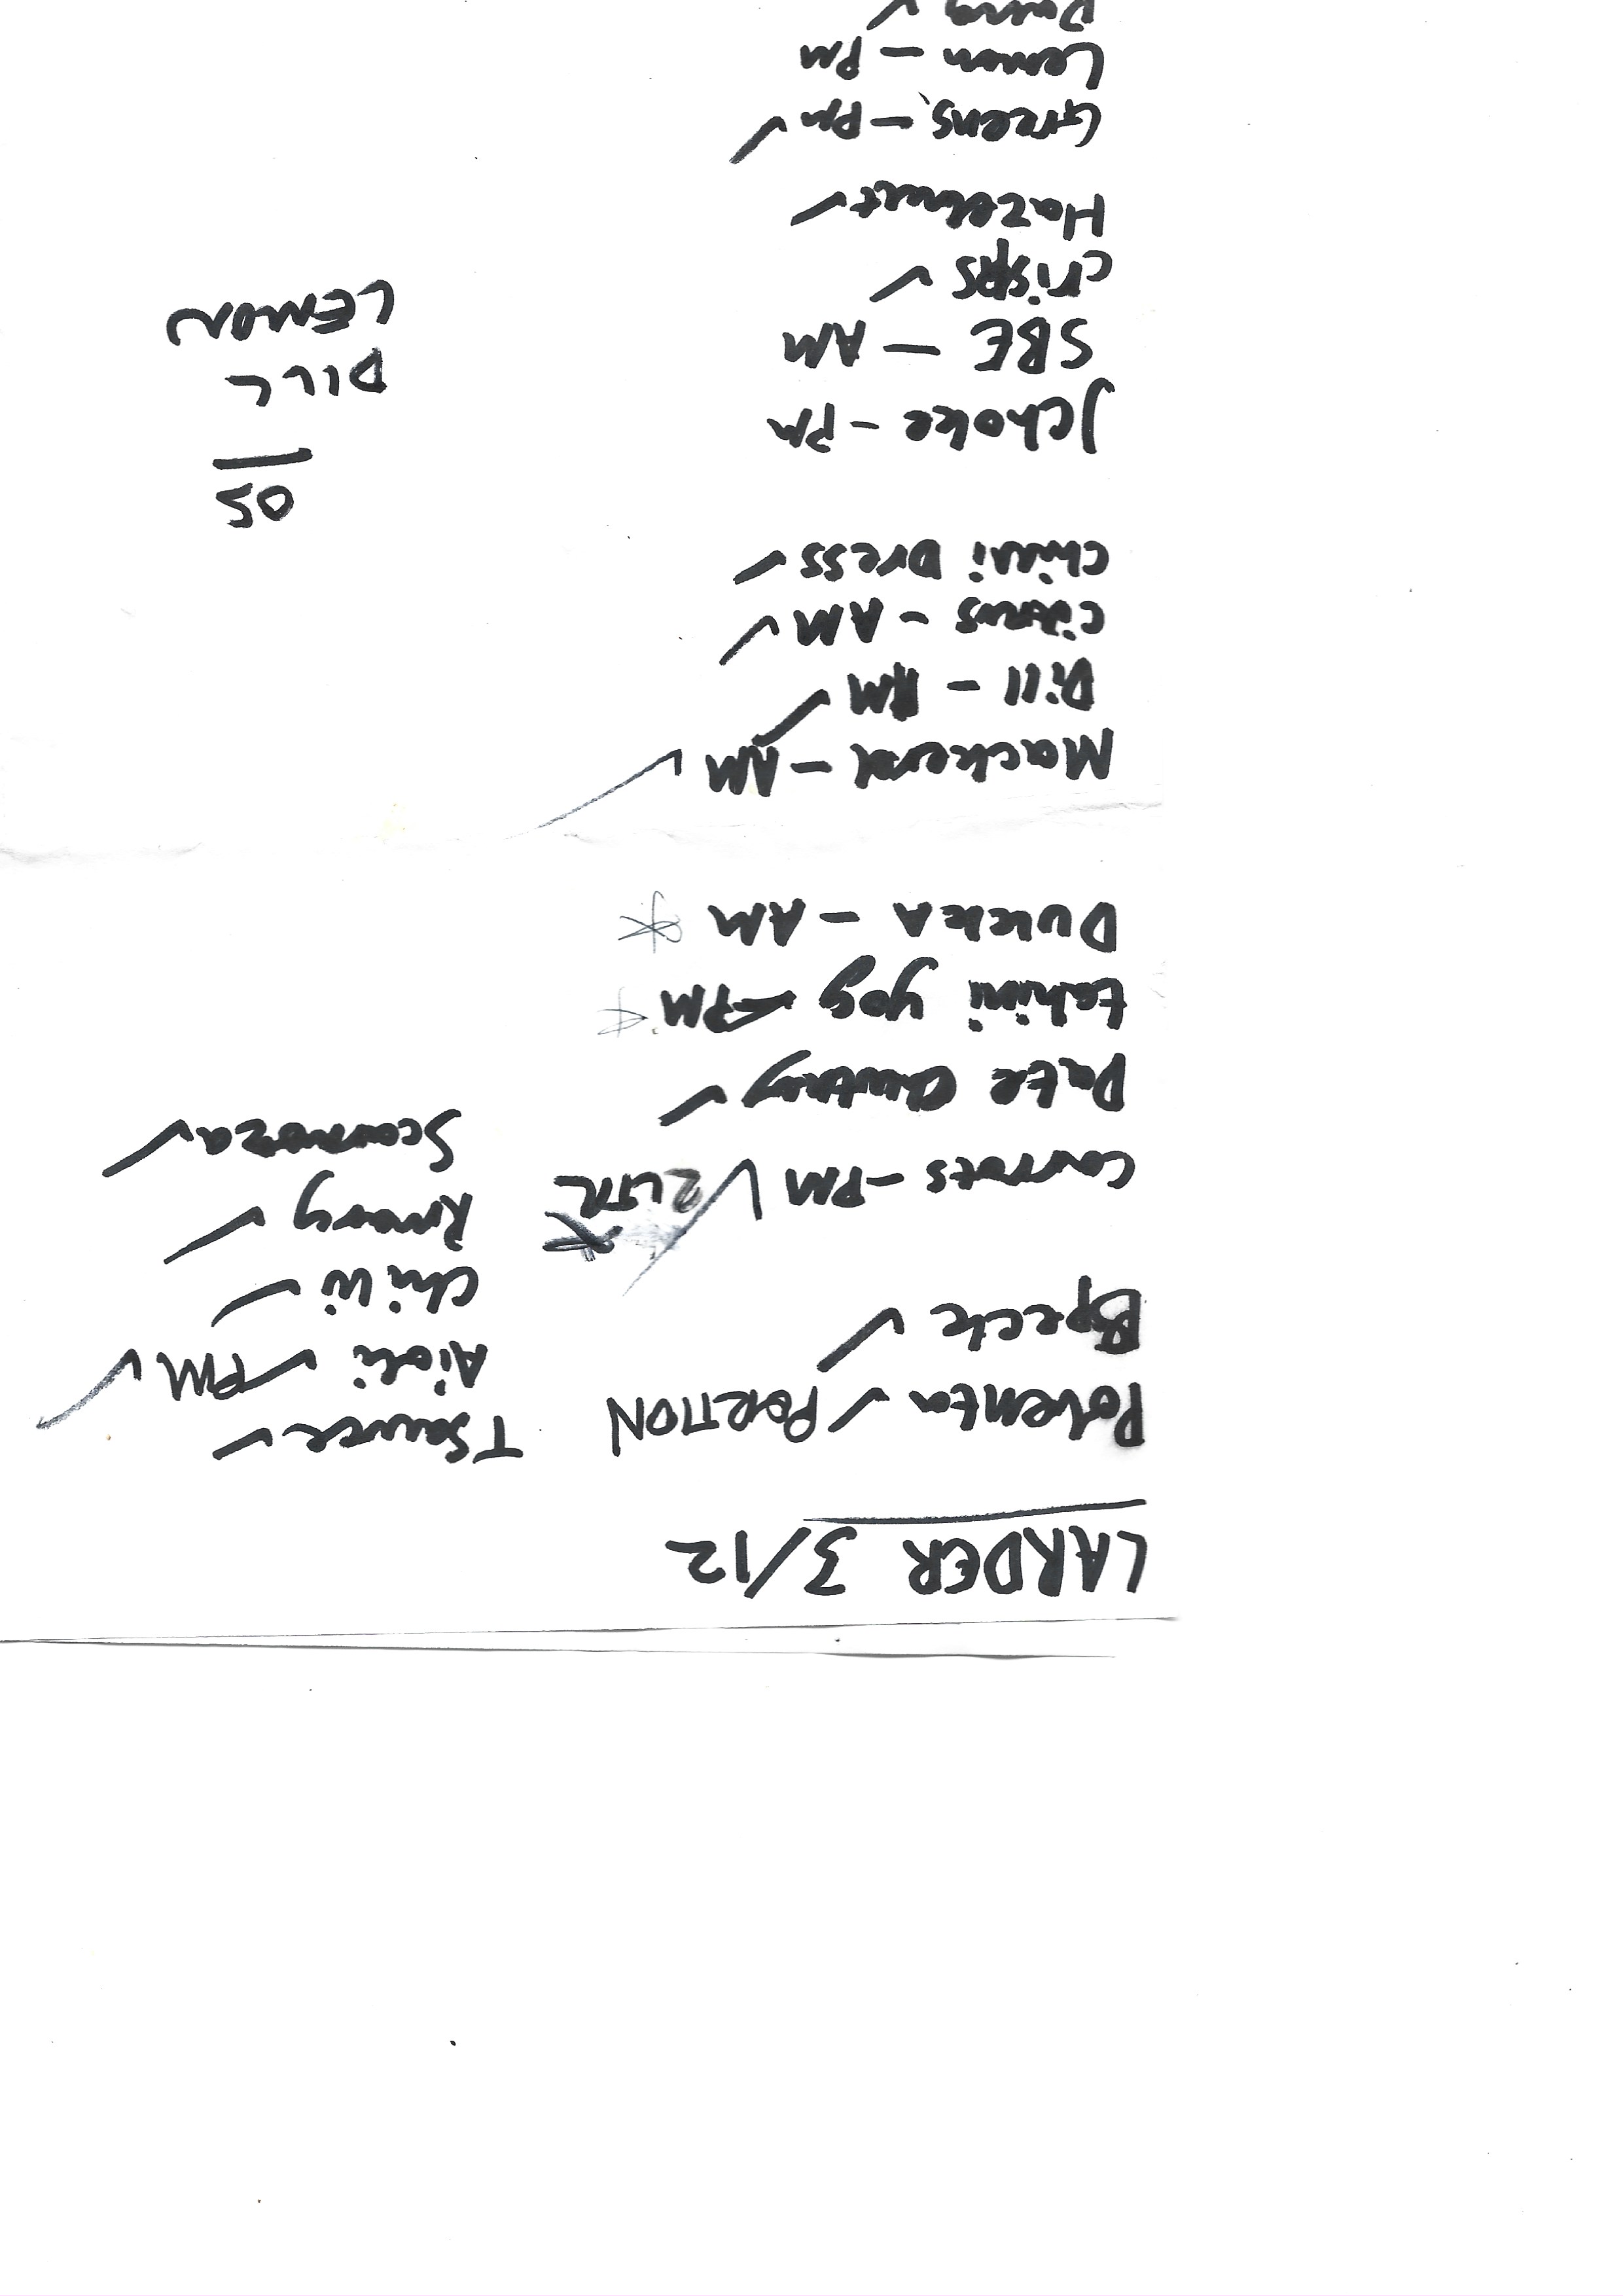 LARDER 3/12
Polenta ✓ PORTION
Bpeck ✓
Carrots - PM ✓ 2 LTR *
Date Chutney ✓
tahini yog - PM *
DUKKA - AM *
Mackerel - AM ✓
Dill - AM ✓
citrus - AM ✓
chilli Dress ✓
Jchoke - PM
SBE - AM
crisps ✓
Hazelnut ✓
Greens - PM ✓
Lemon - PM
T Sauce ✓
Aioli ✓ PM ✓
Chilli ✓
Scamorza ✓
OS
DILL
LEMON